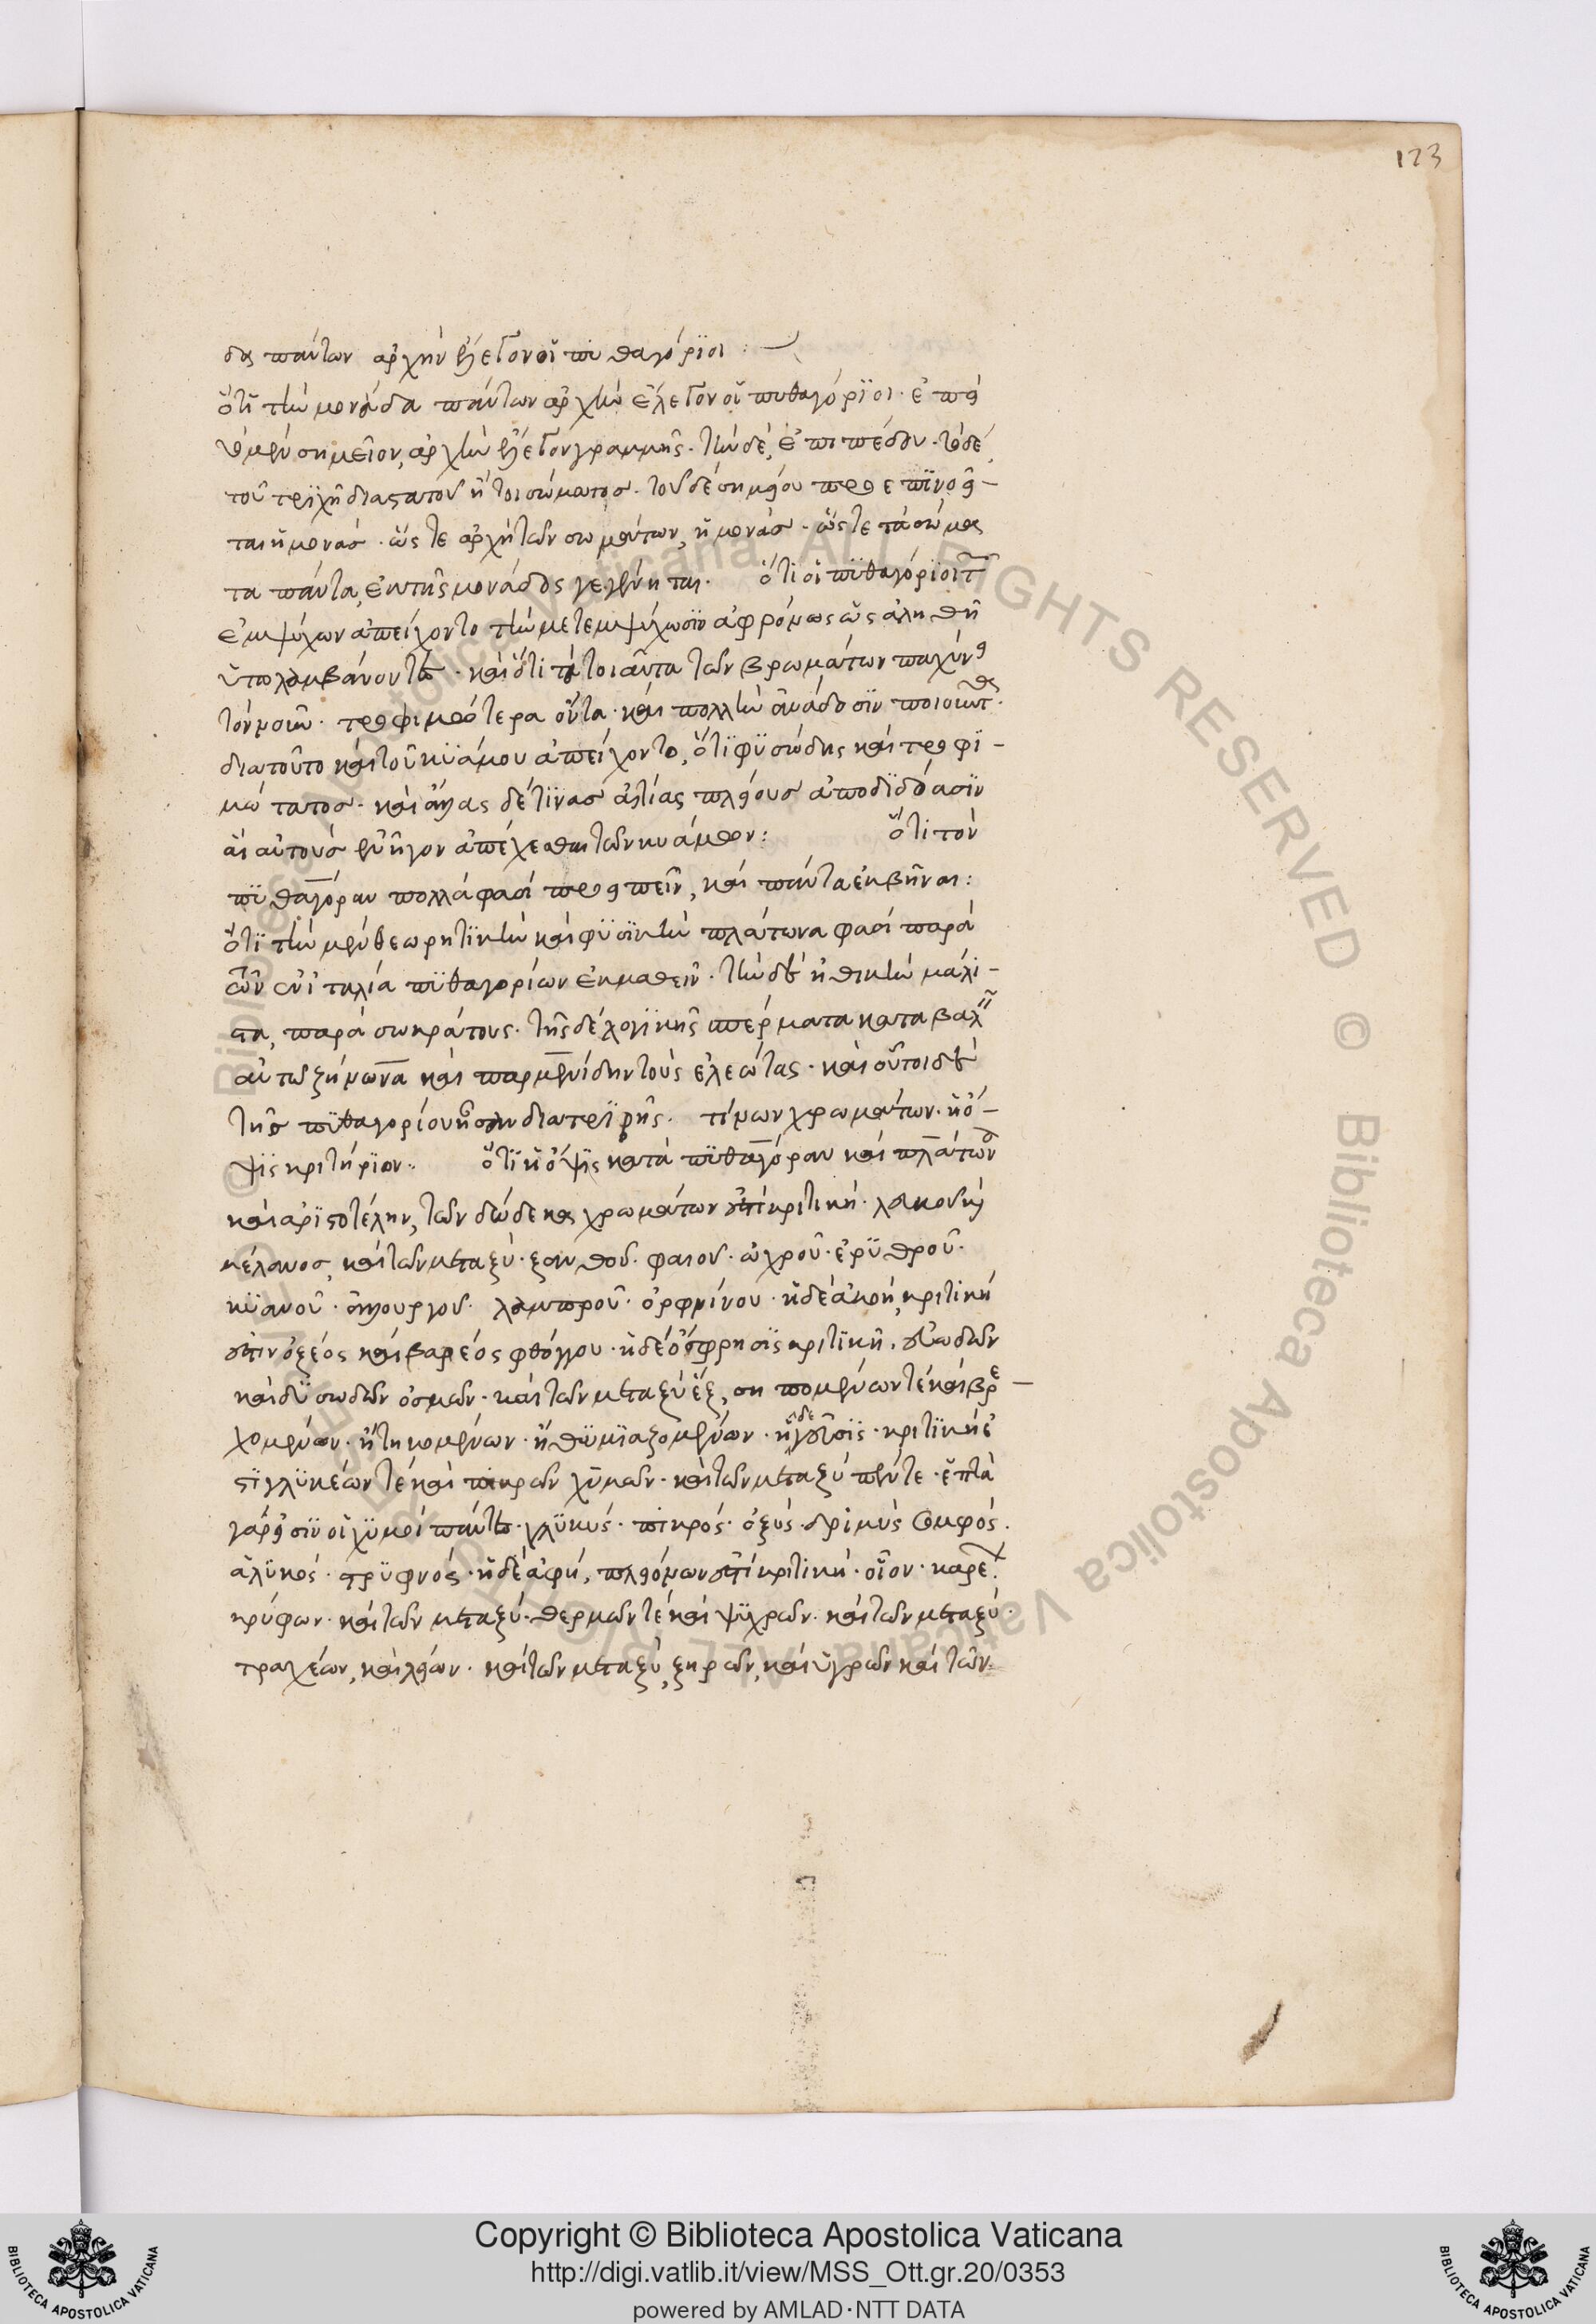 123
δας πάντων ἀρχὴν ἔλεγον οἱ πυθαγόριοι :
ὅτι τὴν μονάδα πάντων ἀρχὴν ἔλεγον οἱ πυθαγόριοι· ἐπεὶ
τὸ μὲν σημεῖον, ἀρχὴν ἔλεγον γραμμῆς· τὴν δὲ, ἐπιπέδου· τὸ δὲ,
τοῦ τριχῆ διαστατοῦ ἤτοι σώματος· τοῦ δὲ σημείου προεπινοεῖ-
ται ἡ μονάς· ὥστε ἀρχὴ τῶν σωμάτων, ἡ μονάς· ὥστε τὰ σώμα
τα πάντα, ἐκ τῆς μονάδος γεγένηται· ὅτι οἱ πυθαγόριοι τ
ἐμψύχων ἀπείχοντο τὴν μετεμψύχωσιν ἀφρόνως ὡς ἀληθῆ
ὑπολαμβάνοντες· καὶ ὅτι τὰ τοιαῦτα τῶν βρωμάτων παχύνει
τὸν νοῦν· τροφιμώτερα ὄντα· καὶ πολλὴν ἀνάδοσιν ποιοῦντα·
διατοῦτο καὶ τοῦ κυάμου ἀπείχοντο, ὅτι φυσώδης καὶ τροφι-
μώτατος· καὶ ἄλλας δέ τινας αἰτίας πλείους ἀποδιδόασιν
αἳ αὐτοὺς ἐνῆγον ἀπέχεσθαι τῶν κυάμων : ὅτι τὸν
πυθαγόραν πολλά φασί προειπεῖν, καὶ πάντα ἐκβῆναι :
ὅτι τὴν μὲν θεωρητικὴν καὶ φυσικὴν πλάτωνα φασί παρὰ
τῶν ἐν ἰταλία πυθαγορίων ἐκμαθεῖν· τὴν δὲ ἠθικὴν μάλι-
στα, παρὰ σωκράτους· τῆς δὲ λογικῆς σπέρματα καταβαλεῖν
αὐτῶ ζήνωνα καὶ παρμενίδην τοὺς ἐλεώτας· καὶ οὗτοι δὲ
τῆς πυθαγορίου ἦσαν διατριβῆς· τίνων χρωμάτων· ἡ ὄ-
ψις κριτήριον· ὅτι ἡ ὄψις κατὰ πυθαγόραν καὶ πλάτωνα
καὶ ἀριστοτέλην, τῶν δώδεκα χρωμάτων ἐστὶ κριτική· λευκοῦ καὶ
μέλανος, καὶ τῶν μεταξύ· ξανθοῦ· φαιοῦ· ὠχροῦ· ἐρυθροῦ·
κυανοῦ· ἁλουργοῦ· λαμπροῦ· ὀρφνίνου· ἡ δὲ ἀκοή, κριτική
ἐστιν ὀξέος καὶ βαρέος φθόγγου· ἡ δὲ ὄσφρησις κριτικὴ, εὐωδῶν
καὶ δυσωδῶν ὀσμῶν· καὶ τῶν μεταξὺ ἕξ, σηπομένων τὲ καὶ βρε-
χομένων· ἢ τηκομένων· ἢ θυμιαζομένων· ἡ δὲ γεῦσις· κριτικὴ ἐ
στι γλυκέων τὲ καὶ πικρῶν χυμῶν· καὶ τῶν μεταξὺ πέντε· ἑπτὰ
γάρ εἰσιν οἱ χυμοὶ πάντες· γλυκύς· πικρός· ὀξύς· δριμύς ὀμφός·
ἁλυκός· στρυφνός· ἡ δὲ ἁφή, πλειόνων ἐστὶ κριτική· οἷον· βαρέων·
κούφων· καὶ τῶν μεταξύ· θερμῶν τὲ καὶ ψυχρῶν· καὶ τῶν μεταξύ·
τραχέων, καὶ λείων· καὶ τῶν μεταξύ, ξηρῶν, καὶ ὑγρῶν καὶ τῶν
Copyright © Biblioteca Apostolica Vaticana
http://digi.vatlib.it/view/MSS_Ott.gr.20/0353
powered by AMLAD·NTT DATA